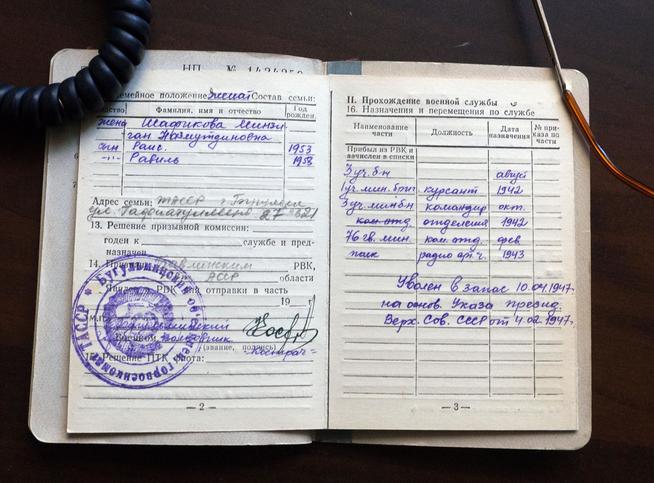 НП № 1424250
Семейное положение женат Состав семьи:
Фамилия, имя и отчество
Год рождения
жена Шафикова Минзи-
ган Назмутдиновна
сын Раис. 1953
-"- Равиль 1958
Адрес семьи: ТАССР г. Бугульма
ул. 27
13. Решение призывной комиссии:
годен к службе и пред-
назначен
14. РВК,
АССР области
РВК для отправки в часть
19 г.
М.П.
(звание, подпись)
15. Решение ПТК флота:
— 2 —
II. Прохождение военной службы
16. Назначения и перемещения по службе
Наименование части
Должность
Дата назначения
№ приказа по части
Прибыл из РВК и
зачислен в списки
3 уч. б-н август
1 уч. мин. курсант 1942
3 уч. мин б-н командир окт.
ком. отд. отделения 1942
76 гв. мин. ком. отд. фев
полк радио арт. ч. 1943
Уволен в запас 10.04.1947.
на основ. Указа презид.
Верх. Сов. СССР от 4.02.1947.
— 3 —